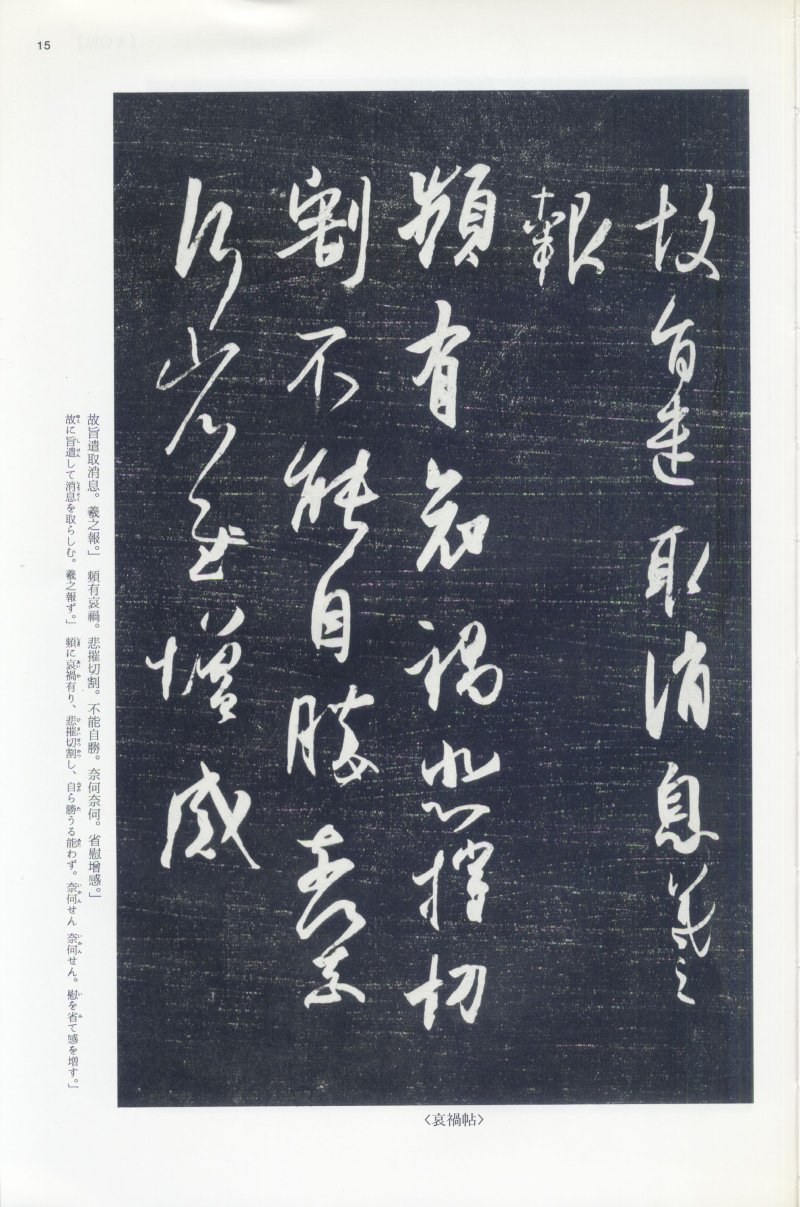 15
故旨遣取消息羲之
報
頻有哀禍悲摧切
割不能自勝奈奈
何何省慰增感
〈哀禍帖〉
故旨遣取消息。羲之報。」　頻有哀禍。悲摧切割。不能自勝。奈何奈何。省慰增感。」
故に旨遣して消息を取らしむ。羲之報ず。」　頻に哀禍有り、悲摧切割し、自ら勝うる能わず。奈何せん　奈何せん。慰を省て感を増す。」